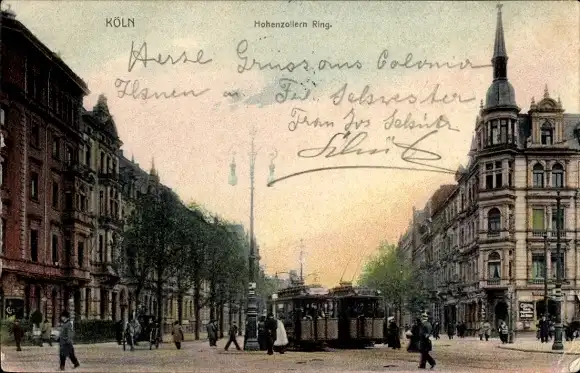 KÖLN
Hohenzollern Ring.
Herze Gruss aus Colonia
Ihnen u. Frl Schwester
Frau Jos Schütz
Schütz